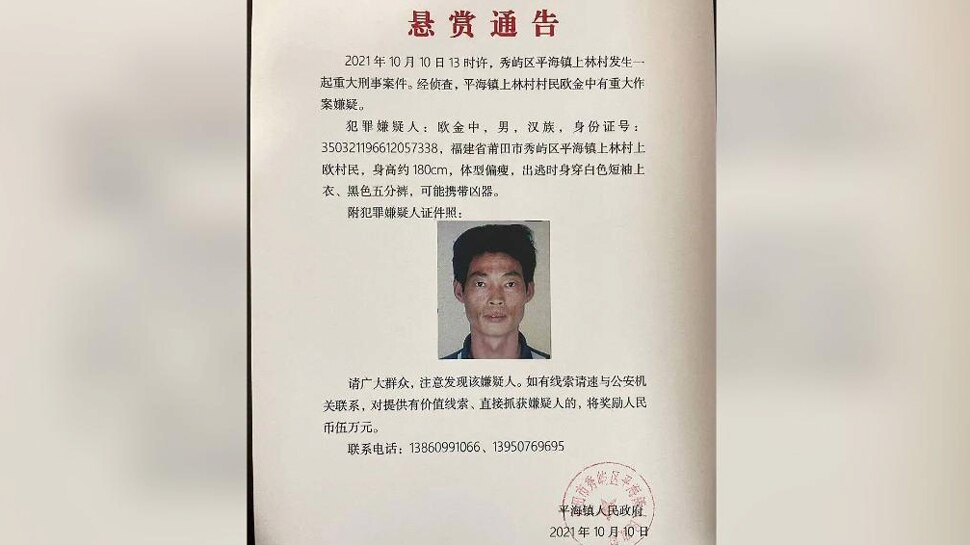 悬赏通告
2021年10月10日13时许，秀屿区平海镇上林村发生一
起重大刑事案件。经侦查，平海镇上林村村民欧金中有重大作
案嫌疑。
犯罪嫌疑人：欧金中，男，汉族，身份证号：
350321196612057338，福建省莆田市秀屿区平海镇上林村上
欧村民，身高约180cm，体型偏瘦，出逃时身穿白色短袖上
衣、黑色五分裤，可能携带凶器。
附犯罪嫌疑人证件照：
请广大群众，注意发现该嫌疑人。如有线索请速与公安机
关联系，对提供有价值线索、直接抓获嫌疑人的，将奖励人民
币伍万元。
联系电话：13860991066、13950769695
市秀屿区平海镇
平海镇人民政府
2021年10月10日